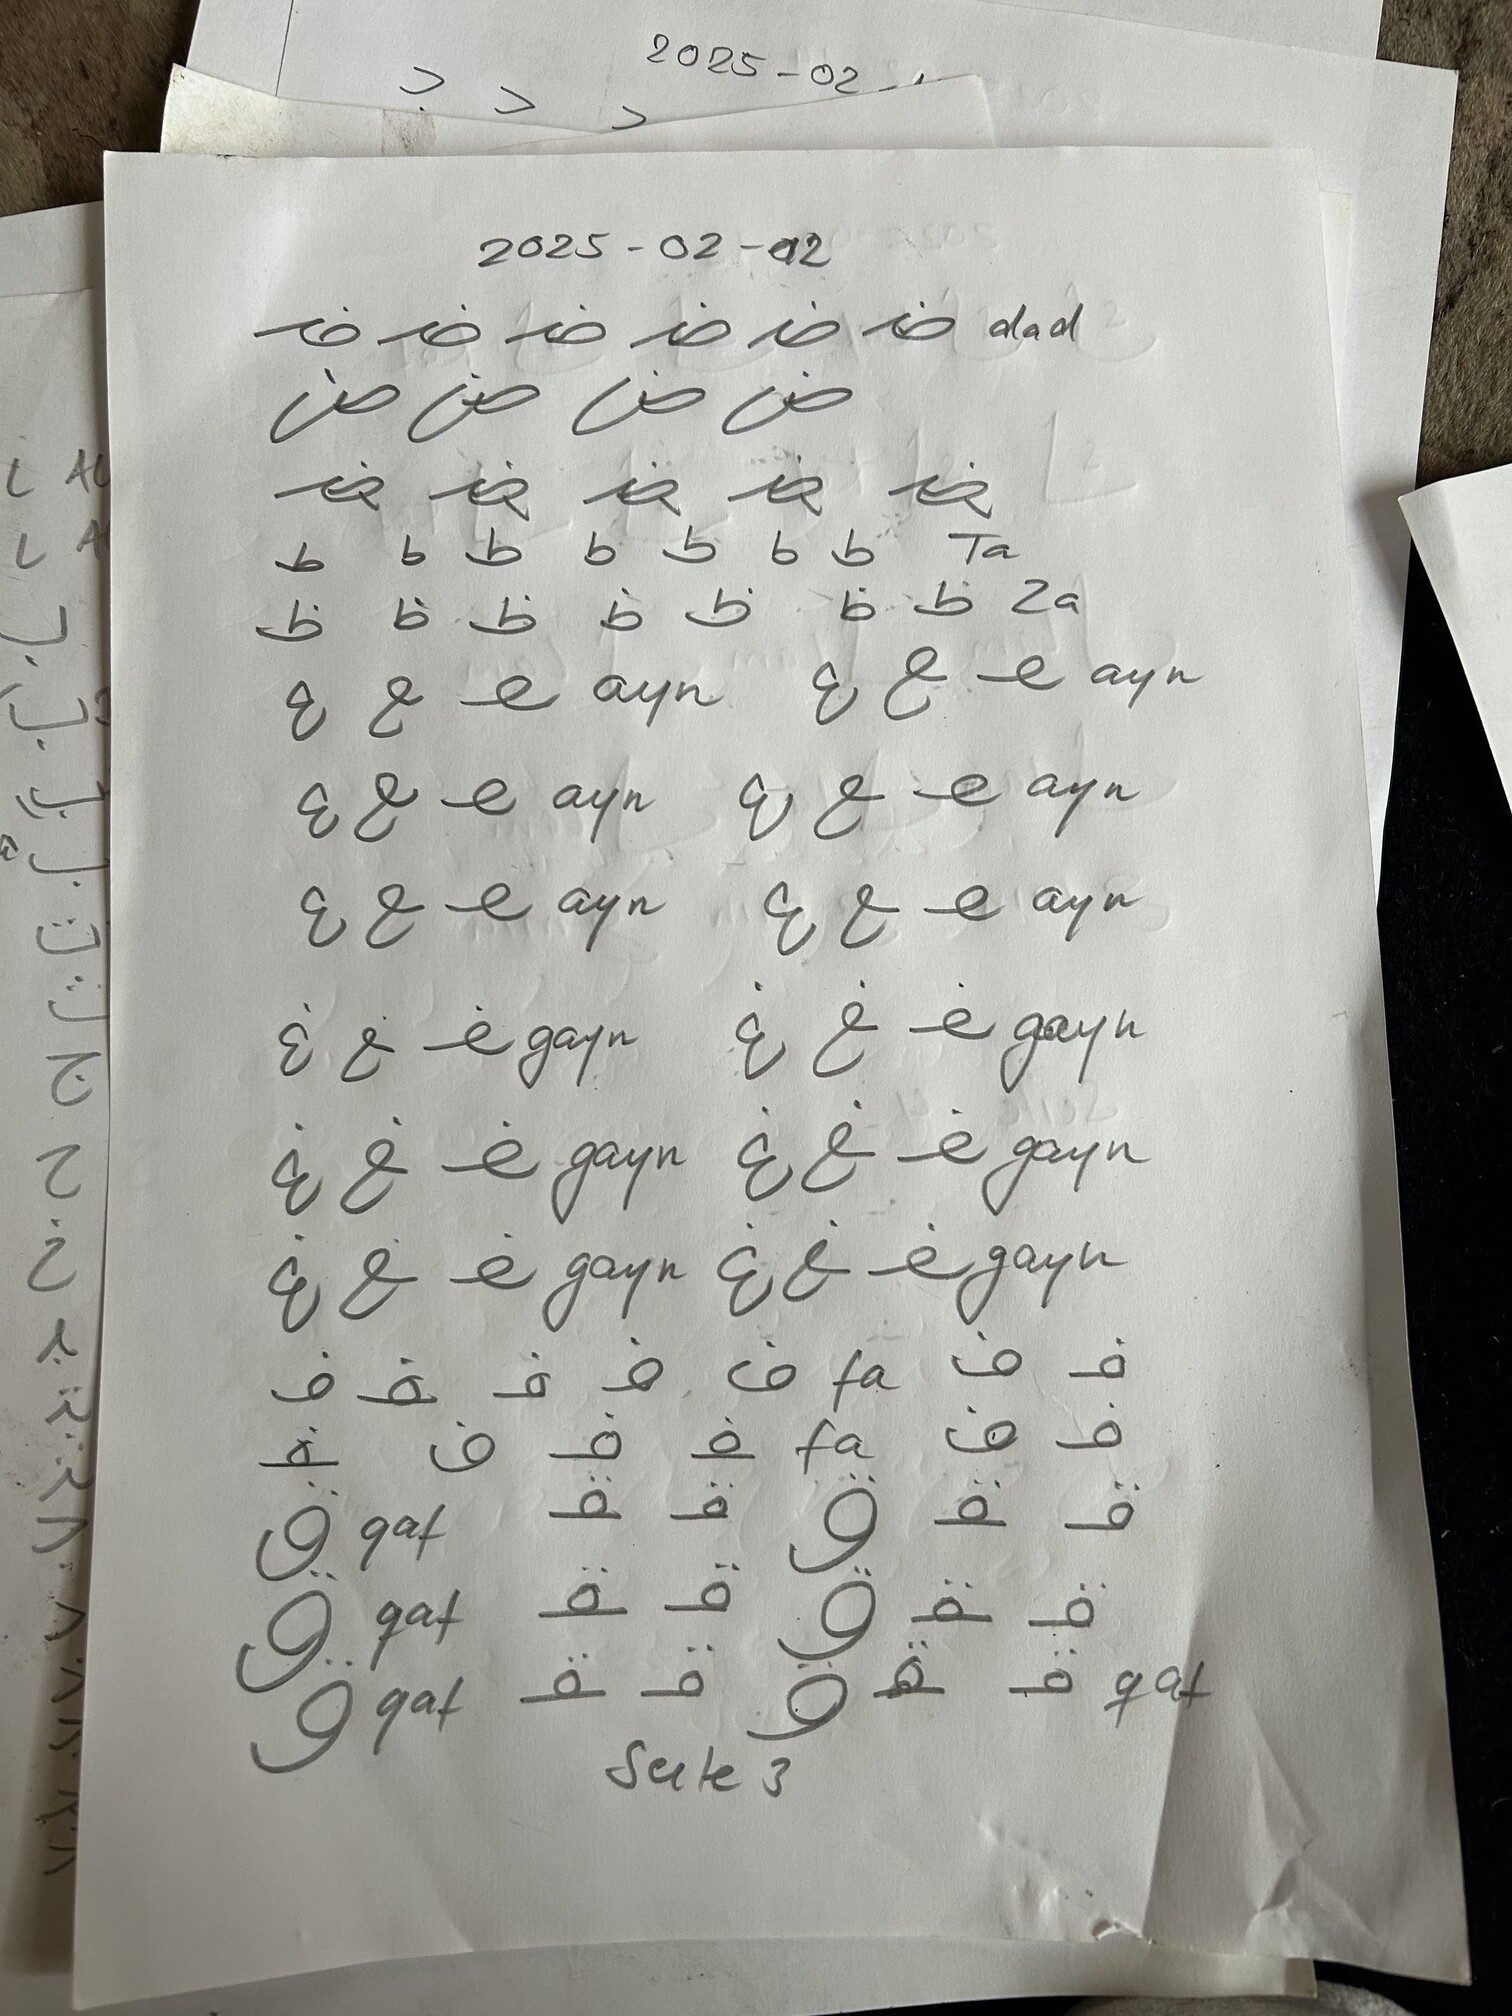 2025-02-
2025-02-02
ضـ ضـ ضـ ضـ ضـ ضـ dad
ض ض ض ض
ضـ ضـ ضـ ضـ ضـ
ط ط ط ط ط ط ط Ta
ظ ظ ظ ظ ظ ظ ظ Za
ع ع ـعـ ayn ع ع ـعـ ayn
ع ع ـعـ ayn ع ع ـعـ ayn
ع ع ـعـ ayn ع ع ـعـ ayn
غ غ ـغـ gayn غ غ ـغـ gayn
غ غ ـغـ gayn غ غ ـغـ gayn
غ غ ـغـ gayn غ غ ـغـ gayn
ف ـفـ فـ فـ ف fa ف فـ
ـفـ ف فـ ـفـ fa ف فـ
ق qaf ـقـ قـ ق ـقـ قـ
ق qaf ـقـ قـ ق ـقـ قـ
ق qaf ـقـ قـ ق ـقـ قـ qaf
Seite 3